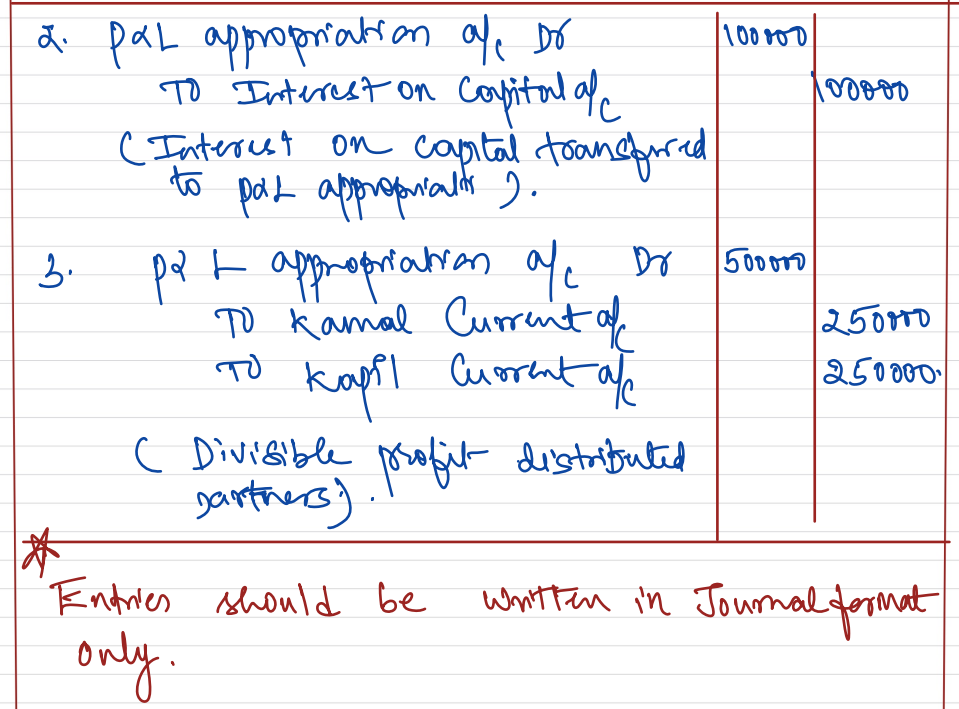 2. P&L appropriation a/c Dr 100000
To Interest on Capital a/c 100000
(Interest on capital transfered
to P&L appropriatn).
3. P&L appropriation a/c Dr 500000
To Kamal Current a/c 250000
To Kapil Current a/c 250000.
(Divisible profit distributed
partners).
Entries should be written in Journal format
only.